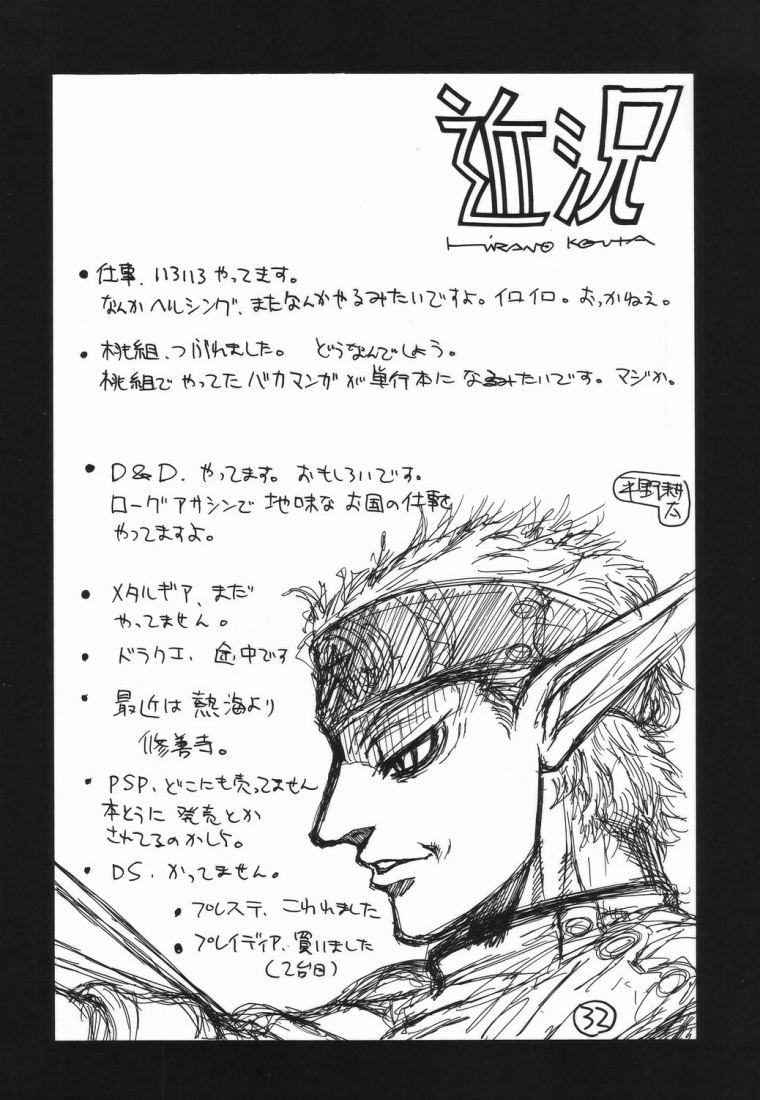 近況
HIRANO KOUTA
● 仕事、いろいろやってます。
なんかヘルシング、またなんかやるみたいですよ。イロイロ。おっかねえ。
● 桃組、つぶれました。 どうなんでしょう。
桃組でやってたバカマンガが単行本になるみたいです。マジか。
● D&D、やってます。おもしろいです。
ローグアサシンで地味なお国の仕事を
やってますよ。
平野耕
太
● メタルギア、まだ
やってません。
● ドラクエ、途中です
● 最近は熱海より
修善寺。
● PSP、どこにも売ってません
本とうに発売とか
されてるのかしら。
● DS、かってません。
● プレステ、こわれました
● プレイディア、買いました
(2台目)
32